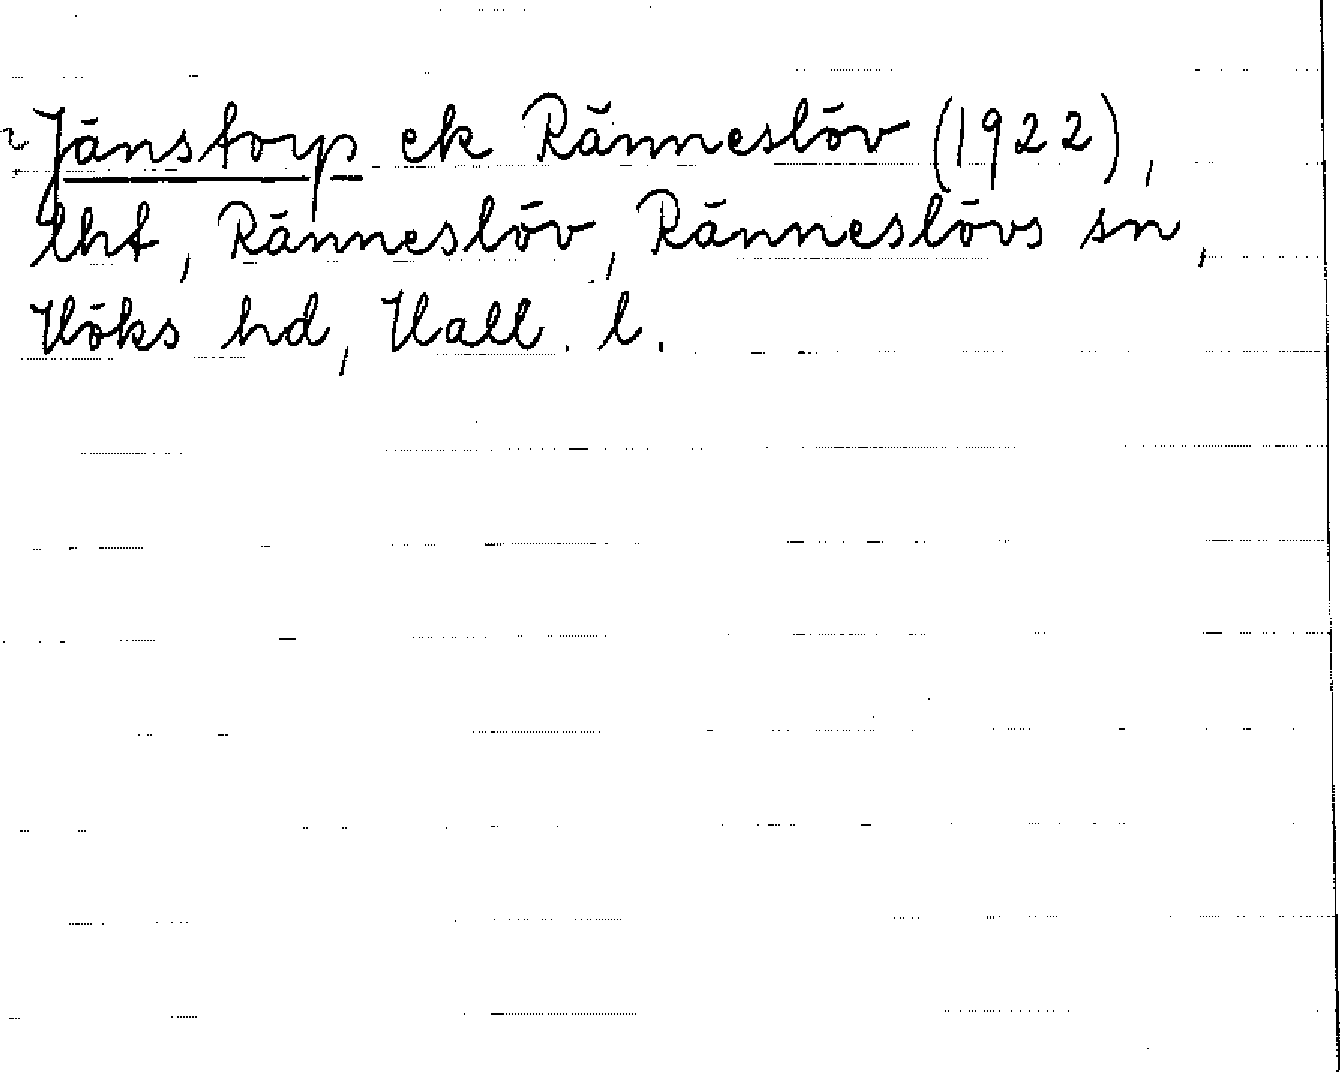 Jänstorp ek Ränneslöv (1922),
lht, Ränneslöv, Ränneslövs sn,
Höks hd, Hall. l.